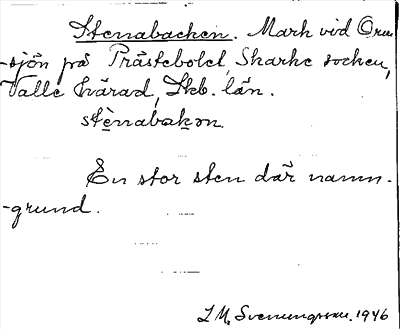 Stenabacken. Mark vid Orne
-sjön på Prästebolet, Skarke socken,
Valle härad, Skb. län.
stènabakən
En stor sten där namn-
-grund.
L M. Svenungsson. 1946